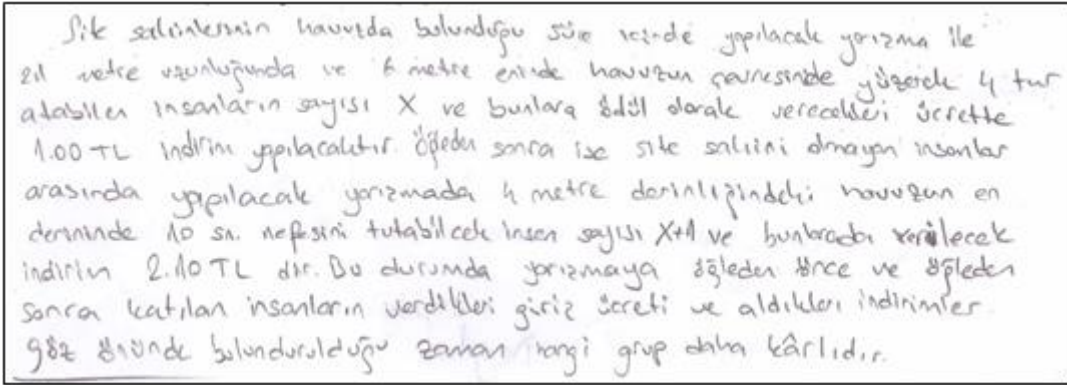 Site sakinlerinin havuzda bulunduğu süre içinde yapılacak yarışma ile
metre uzunluğunda ve 6 metre eninde havuzun çevresinde yüzerek 4 tur
atabilen insanların sayısı X ve bunlara ödül olarak verecekleri ücrette
1.00 TL indirim yapılacaktır. Öğleden sonra ise site sakini olmayan insanlar
arasında yapılacak yarışmada 4 metre derinliğindeki havuzun en
derininde 10 sn. nefesini tutabilcek insan sayısı X+1 ve bunlarada verilecek
indirim 2.10 TL dir. Bu durumda yarışmaya öğleden önce ve öğleden
sonra katılan insanların verdikleri giriş ücreti ve aldıkları indirimler
göz önünde bulundurulduğu zaman hangi grup daha kârlıdır.